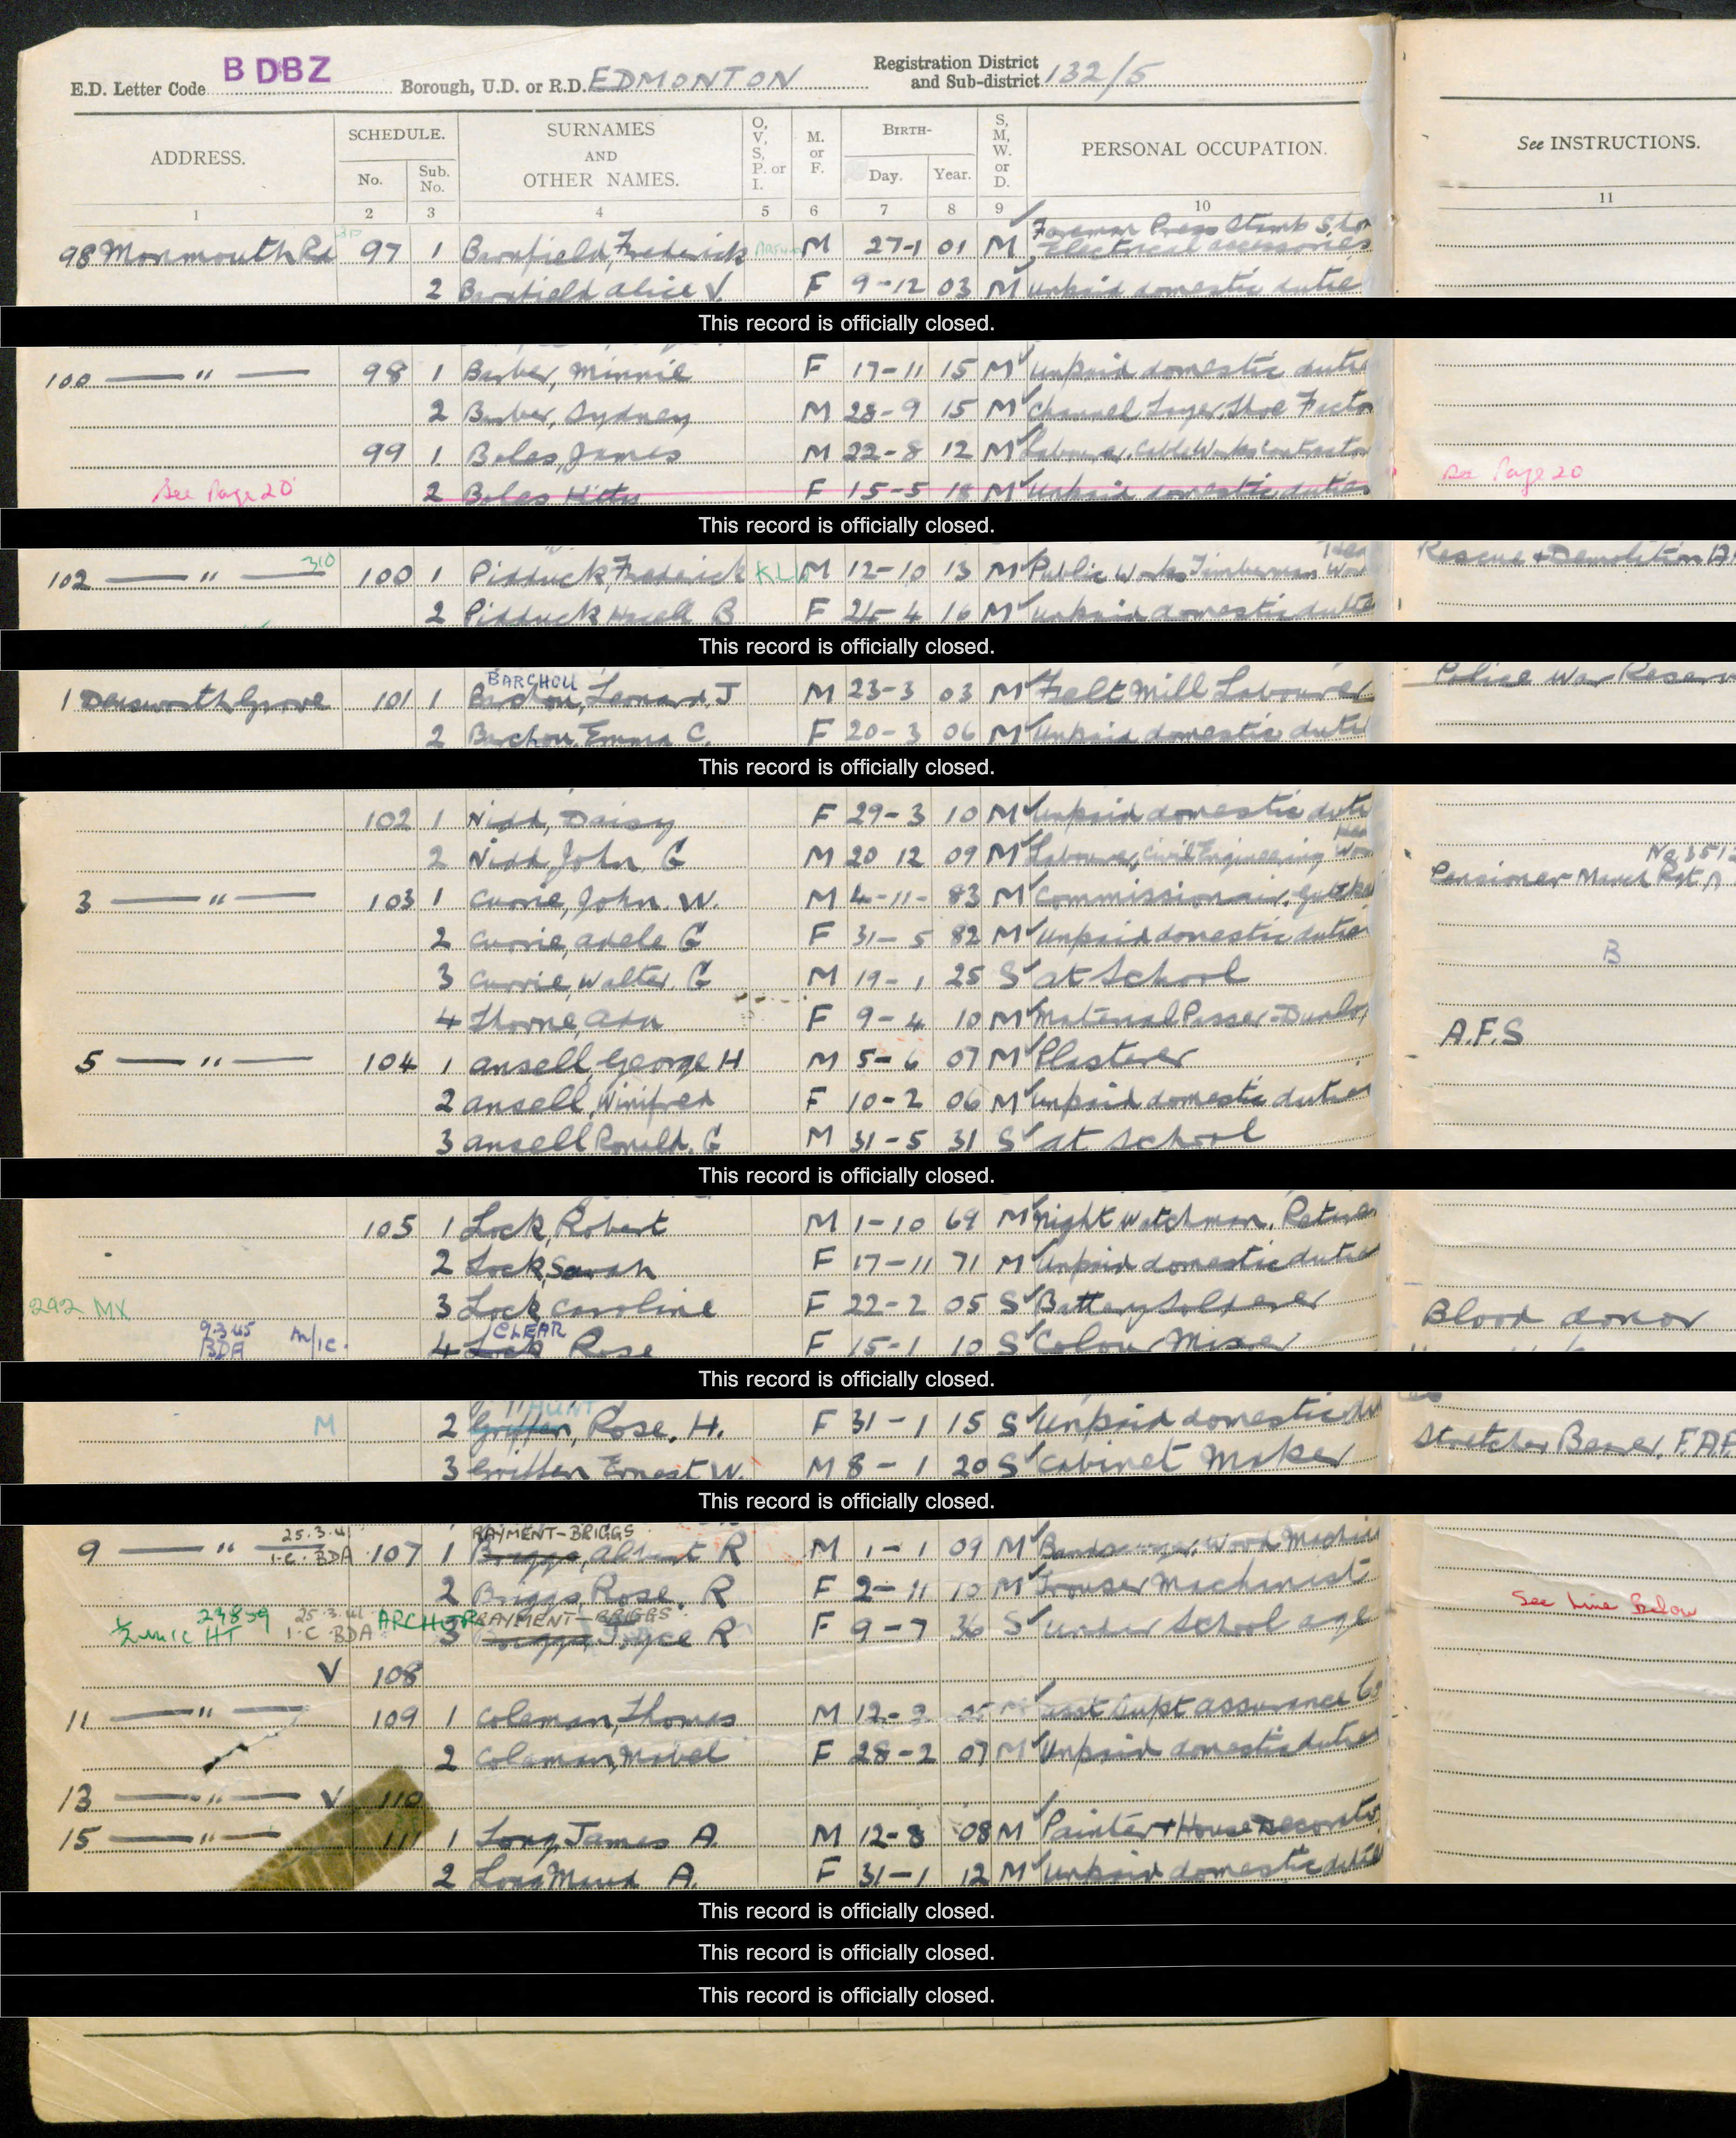 E.D. Letter Code BDBZ Borough, U.D. or R.D. EDMONTON Registration District and Sub-district 132/5
ADDRESS. SCHEDULE. No. Sub. No. SURNAMES AND OTHER NAMES. O, V, S, P. or I. M. or F. BIRTH- Day. Year. S, M, W. or D. PERSONAL OCCUPATION. See INSTRUCTIONS.
1 2 3 4 5 6 7 8 9 10 11
98 Monmouth Rd 97 1 Frederick M 27-1 01 M Foreman Press Stamp Shop Electrical accessories
2 Alice V. F 9-12 03 M Unpaid domestic dutie
This record is officially closed.
100 — " — 98 1 Barber, Minnie F 17-11 15 M Unpaid domestic dutie
2 Barber, Sydney M 28-9 15 M Channel Layer, Shoe Facto
99 1 Boles, James M 22-8 12 M Labourer, Cable Works Contractor
See Page 20 2 Boles Kitty F 15-5 18 M Unpaid domestic duties See Page 20
This record is officially closed.
102 — " — 310 100 1 Pidduck, Frederick M 12-10 13 M Public Works Timberman Rescue + Demolition
2 Pidduck B F 24-4 16 M Unpaid domestic dutie
This record is officially closed.
BARCHOU
1 Densworth Grove 101 1 Barchou, Leonard. J M 23-3 03 M Felt Mill Labourer Police War Reserv
2 Barchou, Emma C. F 20-3 06 M Unpaid domestic dutie
This record is officially closed.
102 1 Nidd, Daisy F 29-3 10 M Unpaid domestic duti
2 Nidd, John. G M 20 12 09 M Labourer, Civil Engineering
3 — " — 103 1 Currie, John. W. M 4-11- 83 M Commissionair, Pensioner
2 Currie, Adele G F 31-5 82 M Unpaid domestic dutie
B
3 Currie, Walter. G M 19-1 25 S at School
4 Thorne, Ada F 9-4 10 M Material Passer-
A.F.S
5 — " — 104 1 Ansell, George H M 5-6 07 M Plasterer
2 Ansell, Winifred F 10-2 06 M Unpaid domestic dutie
3 Ansell Ronald. G M 31-5 31 S at School
This record is officially closed.
105 1 Lock, Robert M 1-10 69 M Night Watchman, Retire
2 Lock, Sarah F 17-11 71 M Unpaid domestic dutie
292 MX 3 Lock, Caroline F 22-2 05 S Battery Solderer Blood donor
9.3.45 CLEAR
BDA 4 Lock Rose F 15-1 10 S Colour Mixer
This record is officially closed.
HUNT
M 2 Griffen, Rose. H. F 31-1 15 S Unpaid domestic Stretcher Bearer, F.A.P
3 Griffen Ernest W. M 8-1 20 S Cabinet Maker
This record is officially closed.
25.3.41 RAYMENT-BRIGGS
9 — " — I.C. BDA 107 1 Briggs, Albert R M 1-1 09 M Wood Machin
2 Briggs, Rose. R F 2-11 10 M Trouser Machinist See Line Below
25.3.41 ARCHER RAYMENT-BRIGGS
I.C BDA 3 Briggs, Joyce R F 9-7 36 S under School age
V 108
11 — " — 109 1 Coleman, Thomas M 12-2 05 M asst Supt assurance Co
2 Coleman, Mabel F 28-2 07 M Unpaid domestic dutie
13 — " — V 110
15 — " — 111 1 Long, James A. M 12-8 08 M Painter + House Decorato
2 Long Maud A. F 31-1 12 M Unpaid domestic dutie
This record is officially closed.
This record is officially closed.
This record is officially closed.